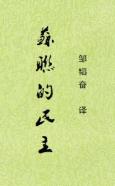 苏联的民主
邹韬奋 译